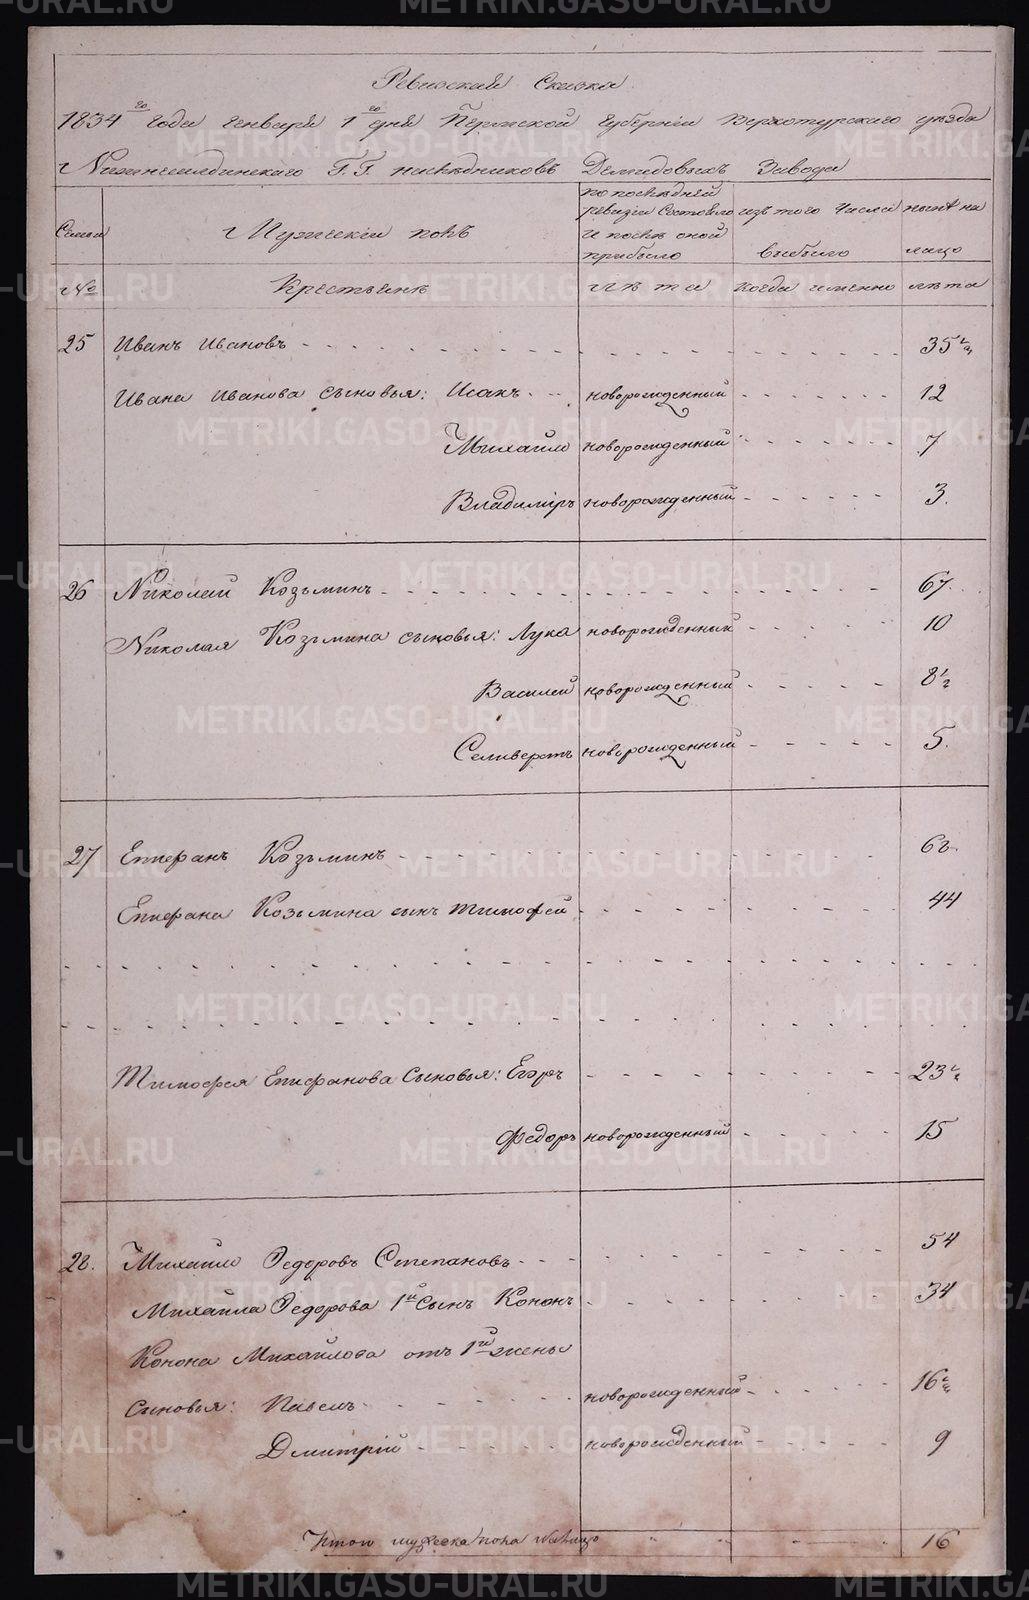 Ревизская Сказка
1834го года генваря 1го дня Пермской губернiи Верхотурскаго уѣзда
Нижнесалдинскаго Г.Г. наслѣдниковъ Демидовыхъ Завода
Семьи Мужескiй полъ по послѣдней ревизiи Состояло и послѣ оной прибыло изъ того Числа выбыло нынѣ на лицо
№ Крестьянъ лѣта когда именно лѣта
25 Иванъ Ивановъ 35 1/2
Ивана Иванова сыновья: Исакъ новорожденный 12
Михайло новорожденный 7
Владимiръ новорожденный 3
26 Николай Козьминъ 67
Николая Козьмина сыновья: Лука новорожденный 10
Василей новорожденный 8 1/2
Селиверстъ новорожденный 5
27 Епифанъ Козьминъ 62
Епифана Козьмина сынъ Тимофей 44
Тимофея Епифанова Сыновья: Егоръ 23 1/2
Федоръ новорожденный 15
28. Михайло Федоровъ Степановъ 54
Михайла Федорова 1й Сынъ Кононъ 34
Конона Михайлова отъ 1й жены
Сыновья: Павелъ новорожденный 16
Дмитрiй новорожденный 9
Итого мужеска пола налицо 16
METRIKI.GASO-URAL.RU